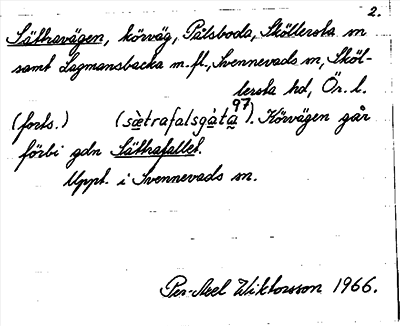 2.
Sättravägen, körväg, Pålsboda, Sköllersta sn
samt Lagmansbacka m.fl., Svennevads sn, Sköl-
lersta hd, Ör. l.
(forts.) (sætrafalsgàta 97). Körvägen går
förbi gdn Sättrafallet.
Uppt. i Svennevads sn.
Per-Axel Wiktorsson 1966.